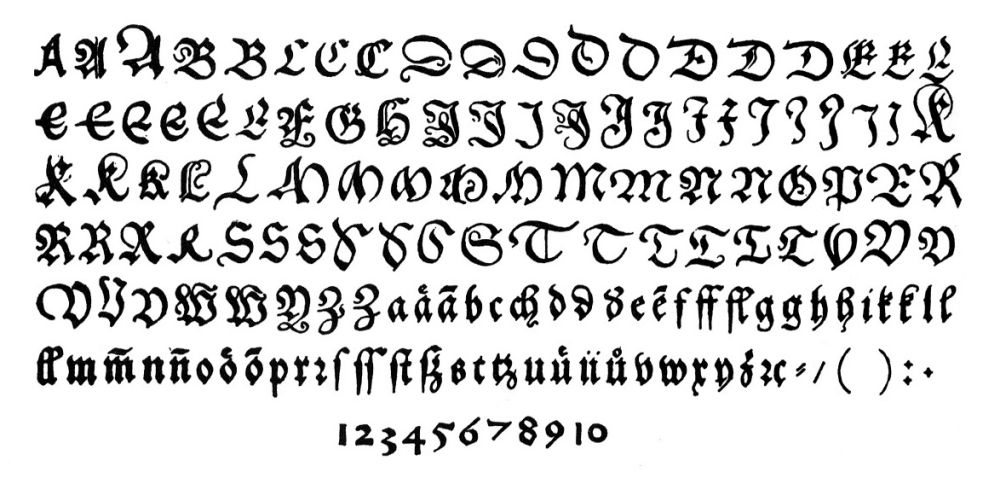 A A A B B C C C D D D D D D D D E E E
E E E E E E F G H J J J J J J J J J J J J J K
K K K L L M M M M M M M N N O P R R
R R R R S S S S S S S T T T T T T O V V
V V V W W Y Z Z a aͤ ã b c ch d d d e ẽ f ff fl g g h h i k k l l
ll m m̃ n ñ o oͤ õ p r ꝛ ſ ſſ ſt ß s t tz u uͤ ü ů v w x y z ꝛc ⸗ / ( ) : ·
1 2 3 4 5 6 7 8 9 10